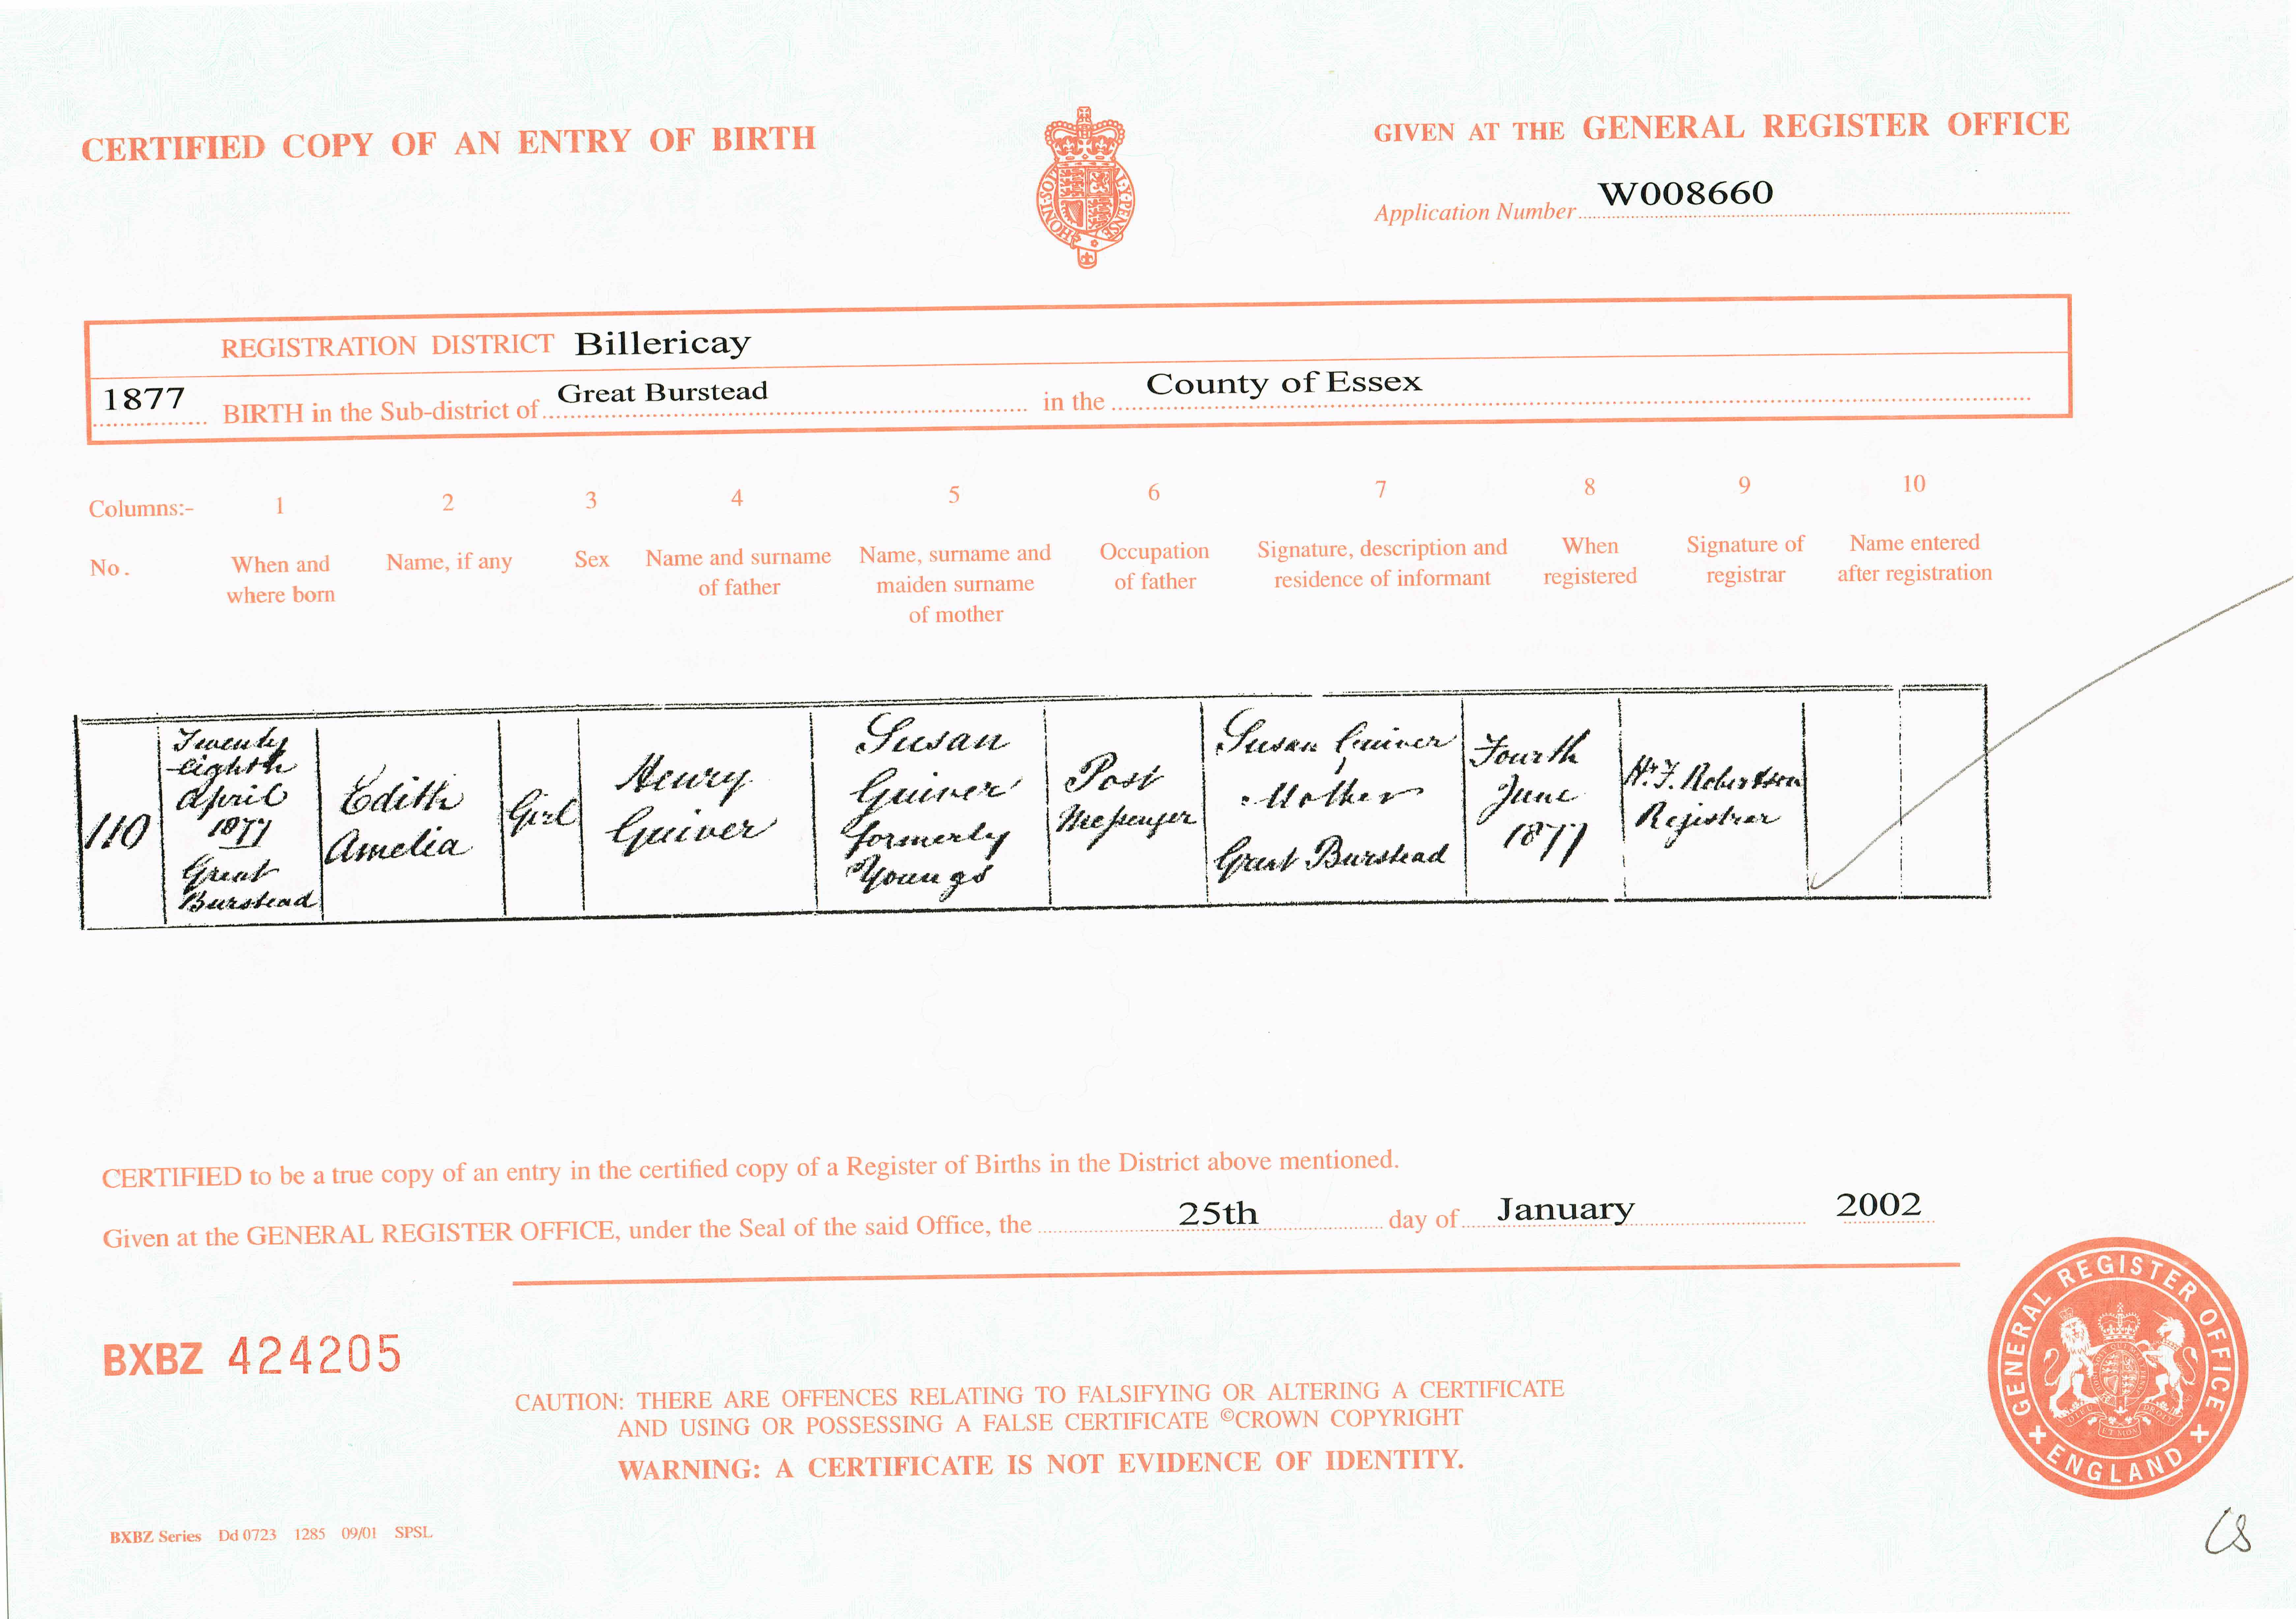 CERTIFIED COPY OF AN ENTRY OF BIRTH
GIVEN AT THE GENERAL REGISTER OFFICE
Application Number W008660
HONI·SOI AL·Y·PENSE
REGISTRATION DISTRICT Billericay
1877 BIRTH in the Sub-district of Great Burstead in the County of Essex
Columns:- 1 2 3 4 5 6 7 8 9 10
No. When and Name, if any Sex Name and surname Name, surname and Occupation Signature, description and When Signature of Name entered
where born of father maiden surname of father residence of informant registered registrar after registration
of mother
110
Twenty
eighth
April
1877
Great
Burstead
Edith
Amelia
Girl
Henry
Quiver
Susan
Quiver
formerly
Youngs
Post
Messenger
Susan Quiver
Mother
Great Burstead
Fourth
June
1877
W. F. Robertson
Registrar
CERTIFIED to be a true copy of an entry in the certified copy of a Register of Births in the District above mentioned.
Given at the GENERAL REGISTER OFFICE, under the Seal of the said Office, the 25th day of January 2002
BXBZ 424205
CAUTION: THERE ARE OFFENCES RELATING TO FALSIFYING OR ALTERING A CERTIFICATE
AND USING OR POSSESSING A FALSE CERTIFICATE ©CROWN COPYRIGHT
WARNING: A CERTIFICATE IS NOT EVIDENCE OF IDENTITY.
GENERAL REGISTER OFFICE
ENGLAND
BXBZ Series Dd 0723 1285 09/01 SPSL